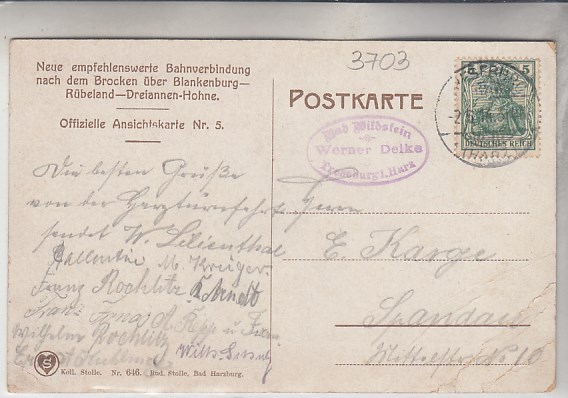 Neue empfehlenswerte Bahnverbindung
nach dem Brocken über Blankenburg—
Rübeland—Dreiannen-Hohne.
Offizielle Ansichtskarte Nr. 5.
3703
POSTKARTE
5
DEUTSCHES REICH
Bad Wildstein
Werner Delke
Treseburg i. Harz
(HARZ)
Die besten Grüße
von der Harzturnfahrt
sendet W. Lilienthal
M. Krüger.
Franz Rochlitz K. Arndt
Franz
Wilhelm Rochlitz
Herrn
E. Karge
Spandau
Mittelstr. No 10
Koll. Stolle. Nr. 646. Rud. Stolle, Bad Harzburg.